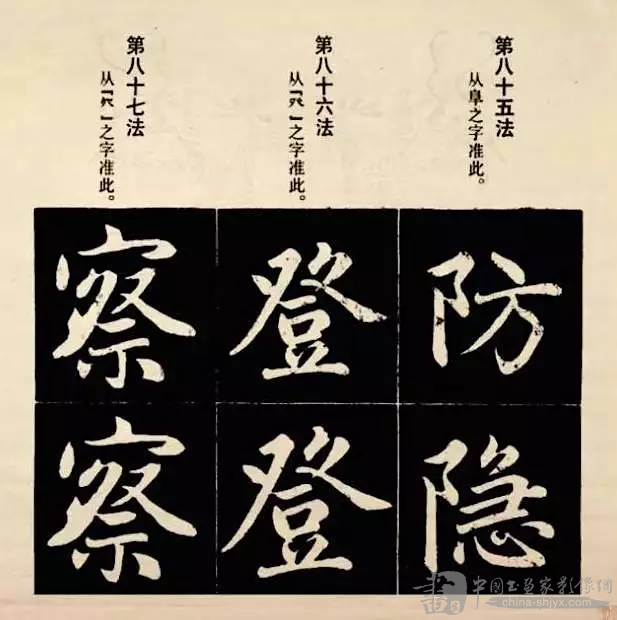 第八十五法
从阜之字准此。
防
隐
第八十六法
从「癶」之字准此。
登
登
第八十七法
从「」之字准此。
察
察
書
中国书画家影像网
china-shjyx.com